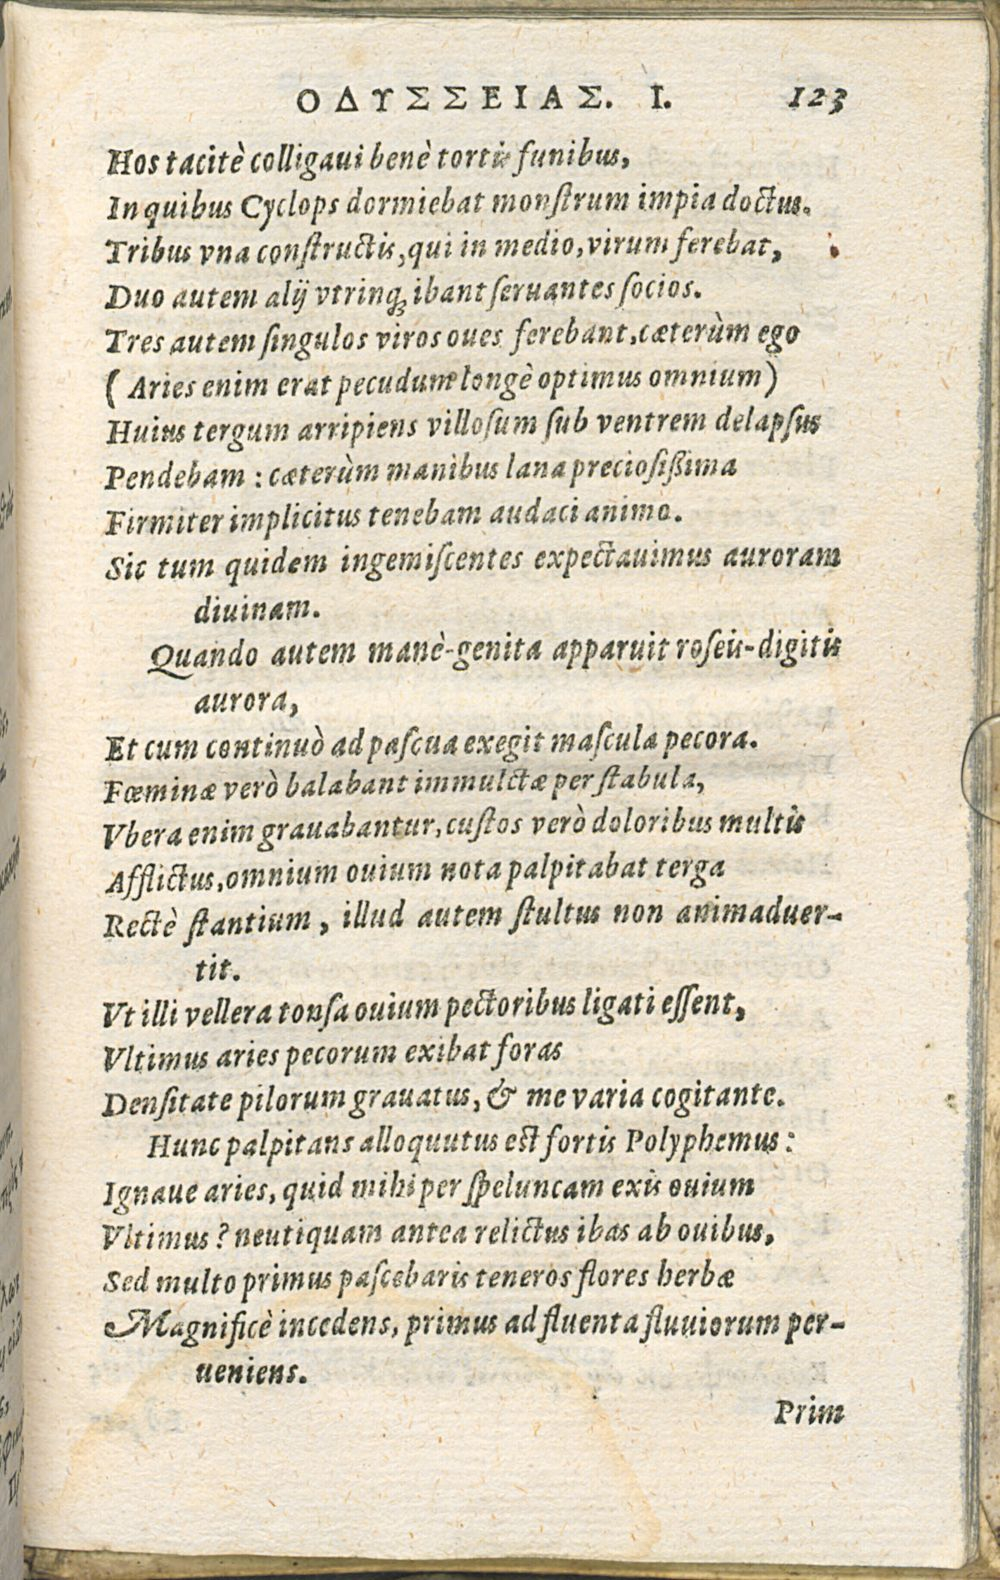 ΟΔΥΣΣΕΙΑΣ. Ι. 123
Hos tacitè colligaui benè tortis funibus,
In quibus Cyclops dormiebat monſtrum impia doctus.
Tribus vna conſtructis, qui in medio, virum ferebat,
Duo autem alij vtrinq; ibant ſeruantes ſocios.
Tres autem ſingulos viros oues ferebant, cæterùm ego
(Aries enim erat pecudum longè optimus omnium)
Huius tergum arripiens villoſum ſub ventrem delapſus
Pendebam : cæterùm manibus lana precioſißima
Firmiter implicitus tenebam audaci animo.
Sic tum quidem ingemiſcentes expectauimus auroram
diuinam.
Quando autem manè-genita apparuit roſeis-digitis
aurora,
Et cum continuò ad paſcua exegit maſcula pecora.
Fœminæ verò balabant immulctæ per ſtabula,
Vbera enim grauabantur, cuſtos verò doloribus multis
Afflictus, omnium ouium nota palpitabat terga
Rectè ſtantium, illud autem ſtultus non animaduer-
tit.
Vt illi vellera tonſa ouium pectoribus ligati eſſent,
Vltimus aries pecorum exibat foras
Denſitate pilorum grauatus, & me varia cogitante.
Hunc palpitans alloquutus est fortis Polyphemus:
Ignaue aries, quid mihi per ſpeluncam exis ouium
Vltimus? neutiquam antea relictus ibas ab ouibus,
Sed multo primus paſcebaris teneros flores herbæ
Magnificè incedens, primus ad fluenta fluuiorum per-
ueniens.
Prim